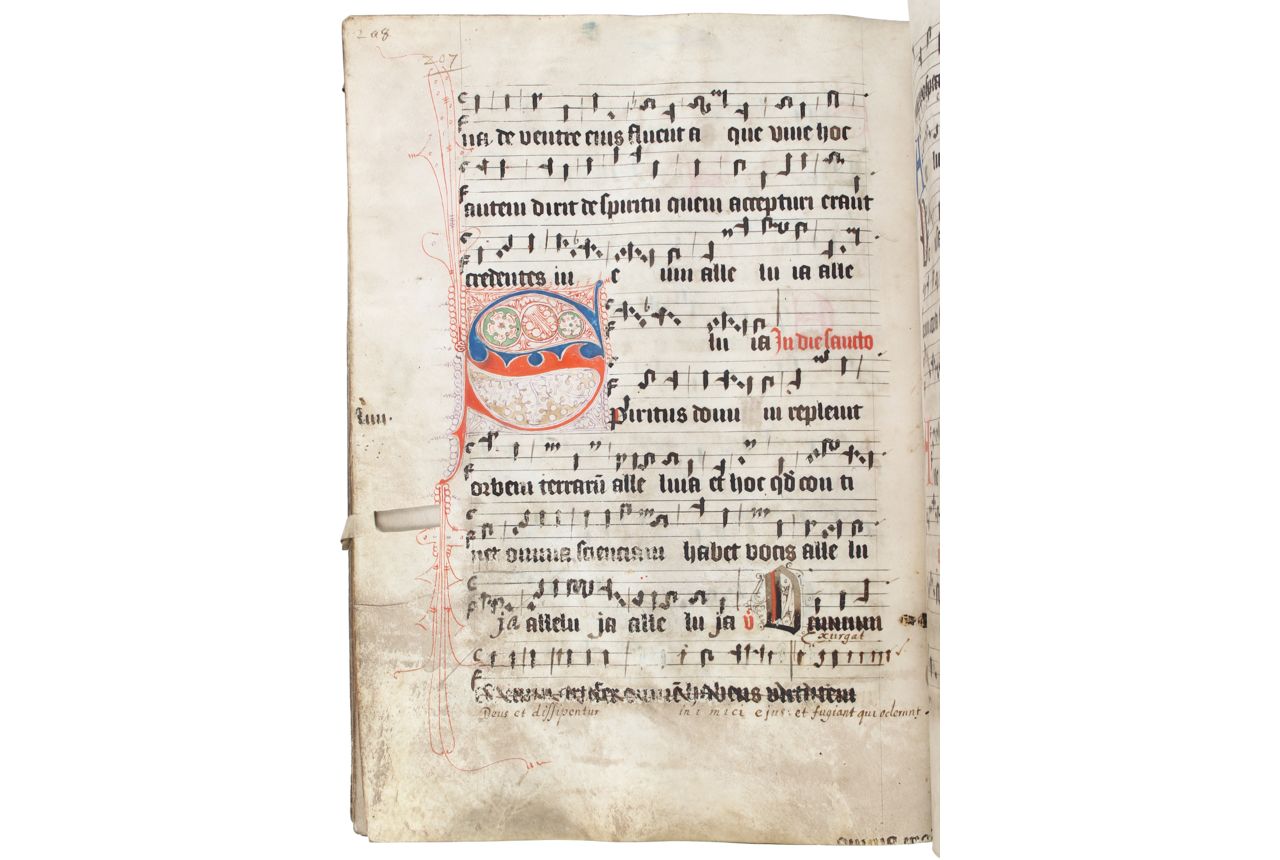 208
207
na de ventre eius fluent a que vive hoc
autem dixit de spiritu quem accepturi erant
credentes in e um alle lu ia alle
lu ia In die sancto
Spiritus domi ni replevit
orbem terrarū alle luia et hoc qd con ti
net omnia scienciam habet vocis alle lu
ja allelu ja alle lu ja v
Exurgat
omnē habens virtutem
Deus et dissipentur in i m i c i ejus: et fugiant qui oderunt.